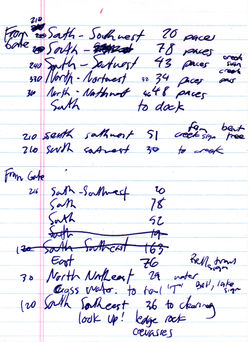 210
From 210 South - Southwest 20 paces
Gate South - 78 paces
240 South - Southwest 43 paces creek
330 North - Northwest 32 34 paces
30 North - Northwest 48 paces
South to dock
210 south southwest 51 creek sign
210 south southwest 30 to creek
From Gate
South - Southwest 20
South 78
South 52
South 19
120 South Southeast 163
East 76
30 North Northeast 29 water
Cross water. to trail "T"
120 South Southeast 36 to clearing
look up! ledge rock
crevasses